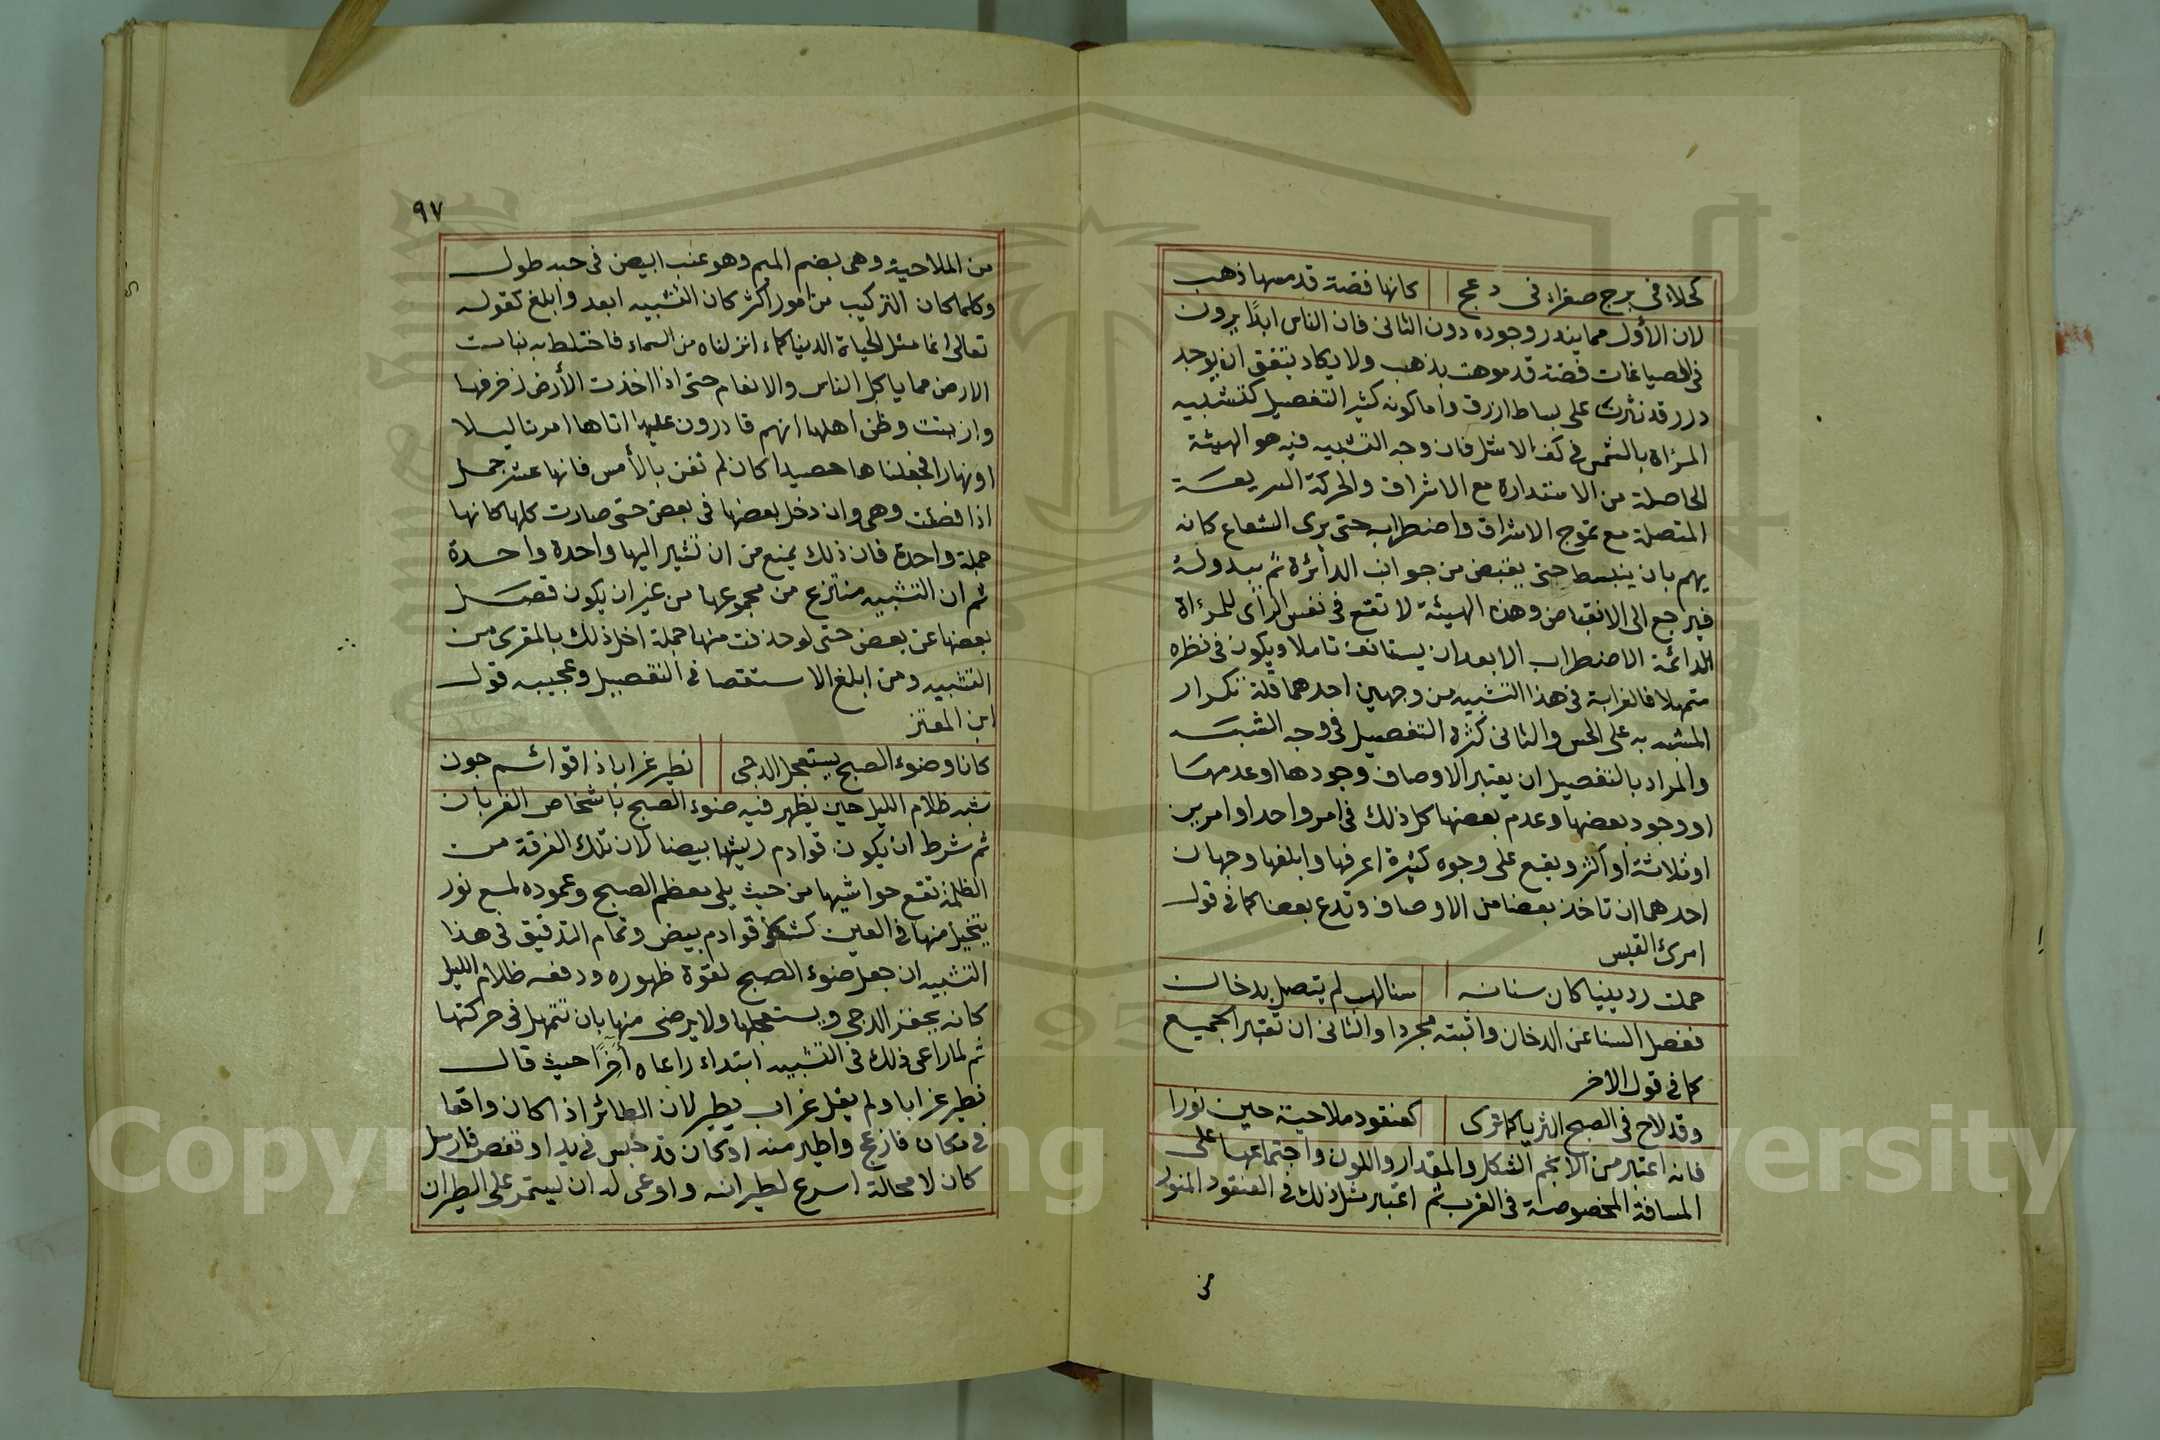 كحلاء في برج صفراء في دعج كانها فضة قد مسها ذهب
لان الأول مما يندر وجوده دون الثانى فان الناس ابدًا يرون
فى الصياغات فضة قد موهت بذهب ولا يكاد يتفق ان يوجد
درر قد نثرت على بساط ازرق واما كونه كثير التفصيل كتشبيه
المرآة بالشمس في كف الاشل فان وجه التشبيه فيه هو الهيئة
الحاصلة من الاستدارة مع الاشراق والحركة السريعة
المتصلة مع تموج الاشراق واضطرابه حتى يرى الشعاع كانه
يهم بان ينبسط حتى يفيض من جوانب الدائرة ثم يبدو له
فيرجع الى الانقباض وهذه الهيئة لا تقع في نفس الرأى للمرءاة
الدائمة الاضطراب الا بعد ان يستانف تاملا ويكون فى نظره
متمهلا فالغرابة فى هذا التشبيه من وجهين احدهما قلة تكرار
المشبه به على الحس والثانى كثرة التفصيل فى وجه الشبه
والمراد بالتفصيل ان يعتبر الاوصاف وجودها او عدمها
او وجود بعضها وعدم بعضها كل ذلك فى امر واحد او امرين
او ثلاثة او اكثر ويقع على وجوه كثيرة اعرفها وابلغها وجهان
احدهما ان تاخذ بعضا من الاوصاف وتدع بعضا كما في قول
امرئ القيس
حملت ردينيا كان سنانه سنا لهب لم يتصل بدخان
ففصل السنا عن الدخان واثبته مجردا والثانى ان تعتبر الجميع
كما في قول الاخر
وقد لاح فى الصبح الثريا كما ترى كعنقود ملاحية حين نورا
فانه اعتبر من الانجم الشكل والمقدار واللون واجتماعها على
المسافة المخصوصة فى القرب ثم اعتبار مثل ذلك في العنقود المنور
من
٩٧
من الملاحية وهى بضم الميم وهو عنب ابيض فى حبه طول
وكلما كان التركيب من امور اكثر كان التشبيه ابعد وابلغ كقوله
تعالى انما مثل الحياة الدنيا كماء انزلناه من السماء فاختلط به نبات
الارض مما ياكل الناس والانعام حتى اذا اخذت الأرض زخرفها
وازينت وظن اهلها انهم قادرون عليها اتاها امرنا ليلا
او نهارا فجعلناها حصيدا كان لم تغن بالأمس فانها عشر جمل
اذا فصلت وهى وان دخل بعضها فى بعض حتى صارت كلها كانها
جملة واحدة فان ذلك يمنع من ان تشير اليها واحدة واحدة
ثم ان التشبيه منتزع من مجموعها من غير ان يكون فصل
بعضها عن بعض حتى لو حذفت منها جملة اخل ذلك بالمغزى من
التشبيه ومن ابلغ الاستقصا فى التفصيل وعجيبه قول
ابن المعتز
كانا وضوء الصبح يستعجل الدجى نطير غرابا ذا قوائم جون
شبه ظلام الليل حين يظهر فيه ضوء الصبح باشخاص الغربان
ثم شرط ان يكون قوادم ريشها بيضا لان تلك الفرقة من
الظلمة تقع حواشيها من حيث يلى معظم الصبح وعموده لمع نور
يتخيل منها فى العين كشكل قوادم بيض وتمام التدقيق فى هذا
التشبيه ان جعل ضوء الصبح لقوة ظهوره ودفعه ظلام الليل
كانه يحفز الدجى ويستعجلها ولا يرضى منها بان تتمهل فى حركتها
ثم لما راعى ذلك فى التشبيه ابتداء راعاه آخرًا حيث قال
نطير غرابا ولم يقل غراب يطير لان الطائر اذا كان واقعا
في مكان فازعج واطير منه او كان قد حبس فى يد او قفص فارسل
كان لا محالة اسرع لطيرانه وادعى له ان ليستمر على الطيران